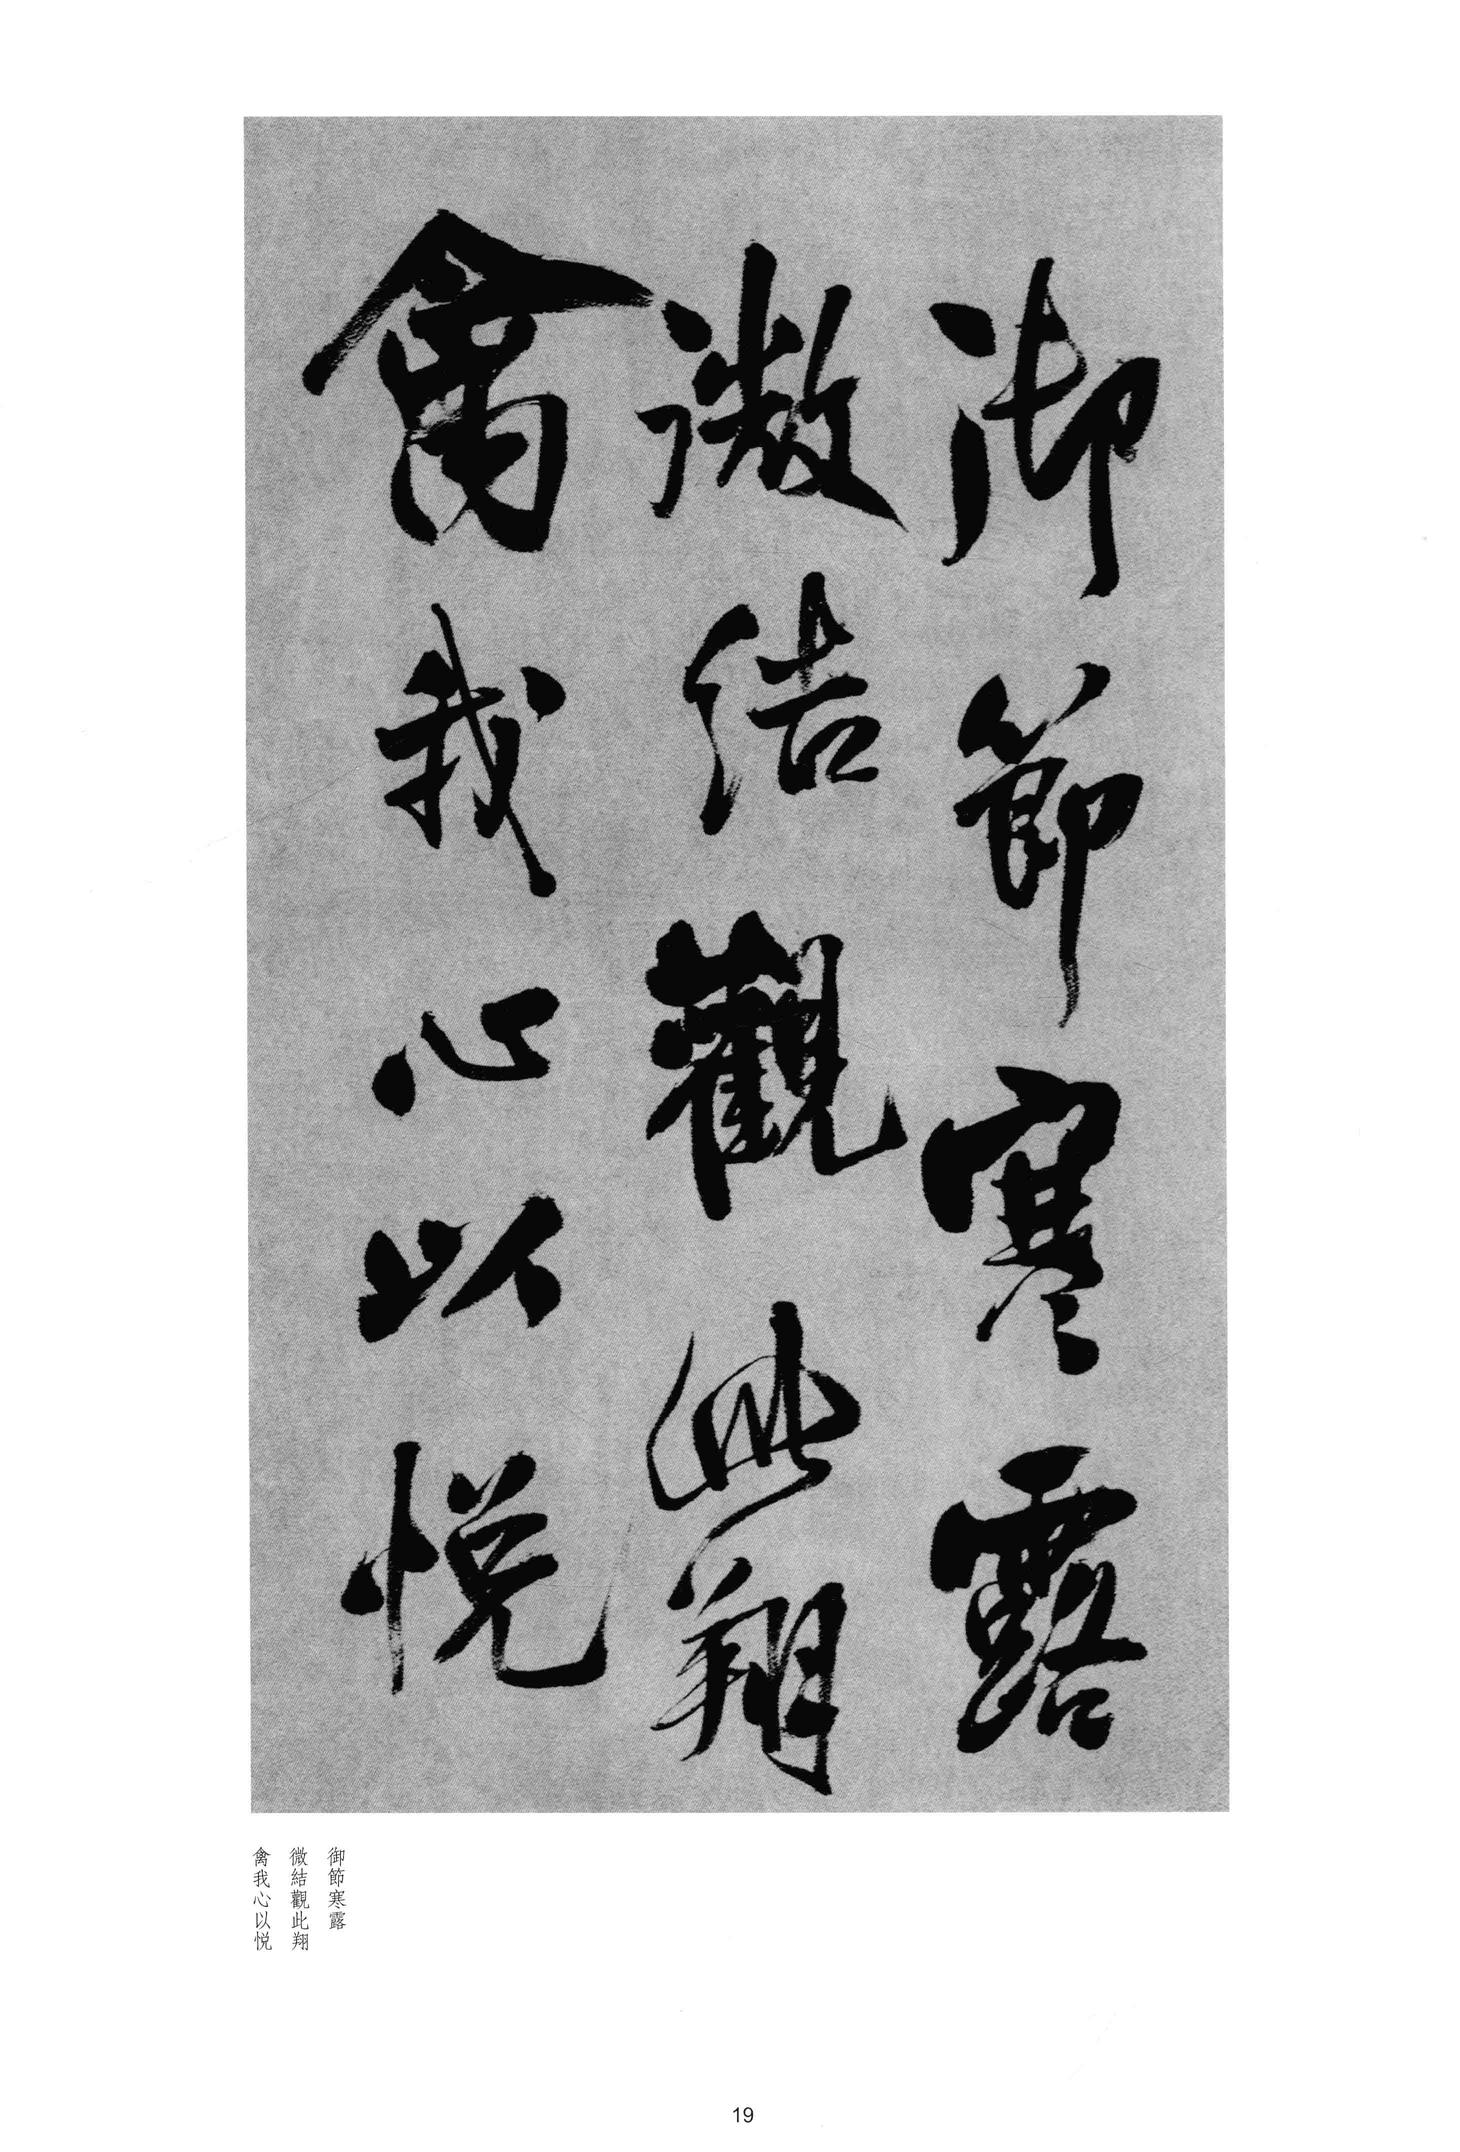 御節寒露
微結觀此翔
禽我心以悅
御節寒露
微結觀此翔
禽我心以悅
19